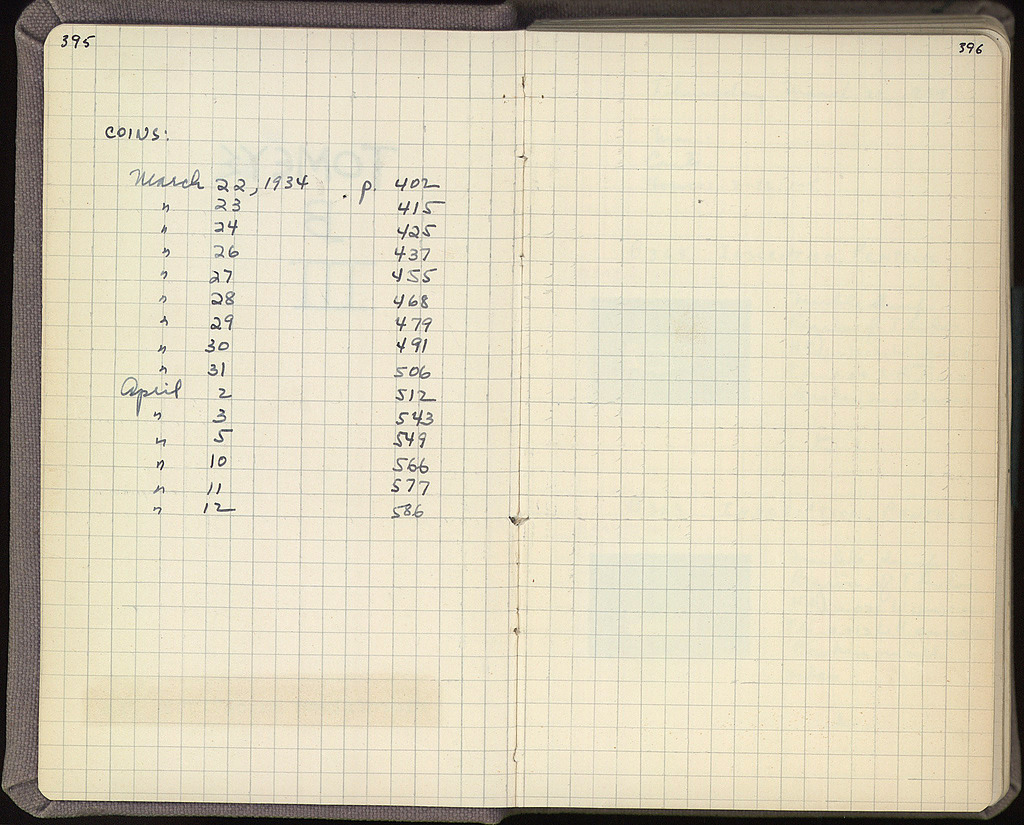 395
396
COINS:
March 22, 1934 . p. 402
" 23 415
" 24 425
" 26 437
" 27 455
" 28 468
" 29 479
" 30 491
" 31 506
April 2 512
" 3 543
" 5 549
" 10 566
" 11 577
" 12 586